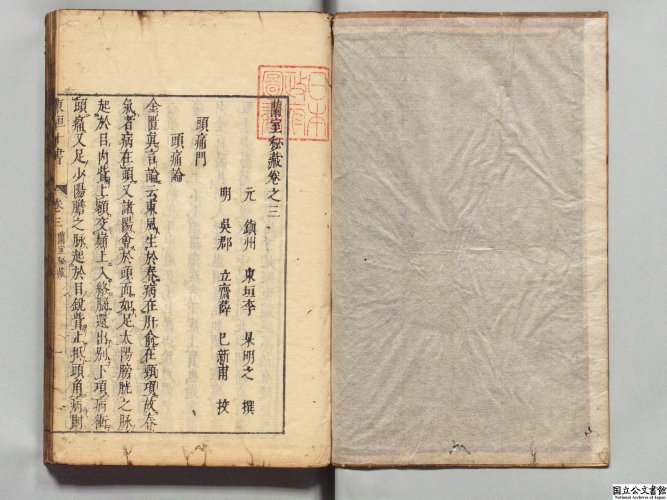 蘭室秘藏卷之三
元 鎮州 東垣李 杲明之 撰
明 吳郡 立齋薛 己新甫 校
頭痛門
頭痛論
金匱真言論云東風生於春病在肝俞在頸項故春
氣者病在頭又諸陽會於頭面如足太陽膀胱之脉
起於目內眥上額交巔上入絡腦還出别下項病衝
頭痛又足少陽膽之脉起於目銳眥上抵頭角病則
東垣十書 卷三 蘭室秘藏 一
日本
政府
圖書
国立公文書館
National Archives of Japan